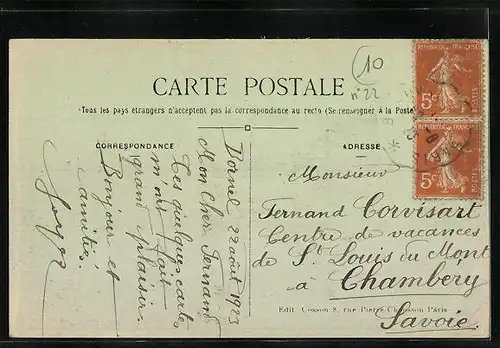 10
n° 22
CARTE POSTALE
Tous les pays étrangers n'acceptent pas la correspondance au recto (Se renseigner à la Poste)
CORRESPONDANCE
ADRESSE
REPUBLIQUE FRANÇAISE
5c
POSTES
REPUBLIQUE FRANÇAISE
5c
POSTES
Bornel 22 août 1923
Mon Cher Fernand
Tes quelques cartes
m'ont fait
grand plaisir.
Bonjour et
amitiés.
Monsieur
Fernand Corvisart
Centre de vacances
de St Louis du Mont
à Chambéry
Savoie.
Edit. Cosson 8, rue Pierre-Chausson Paris